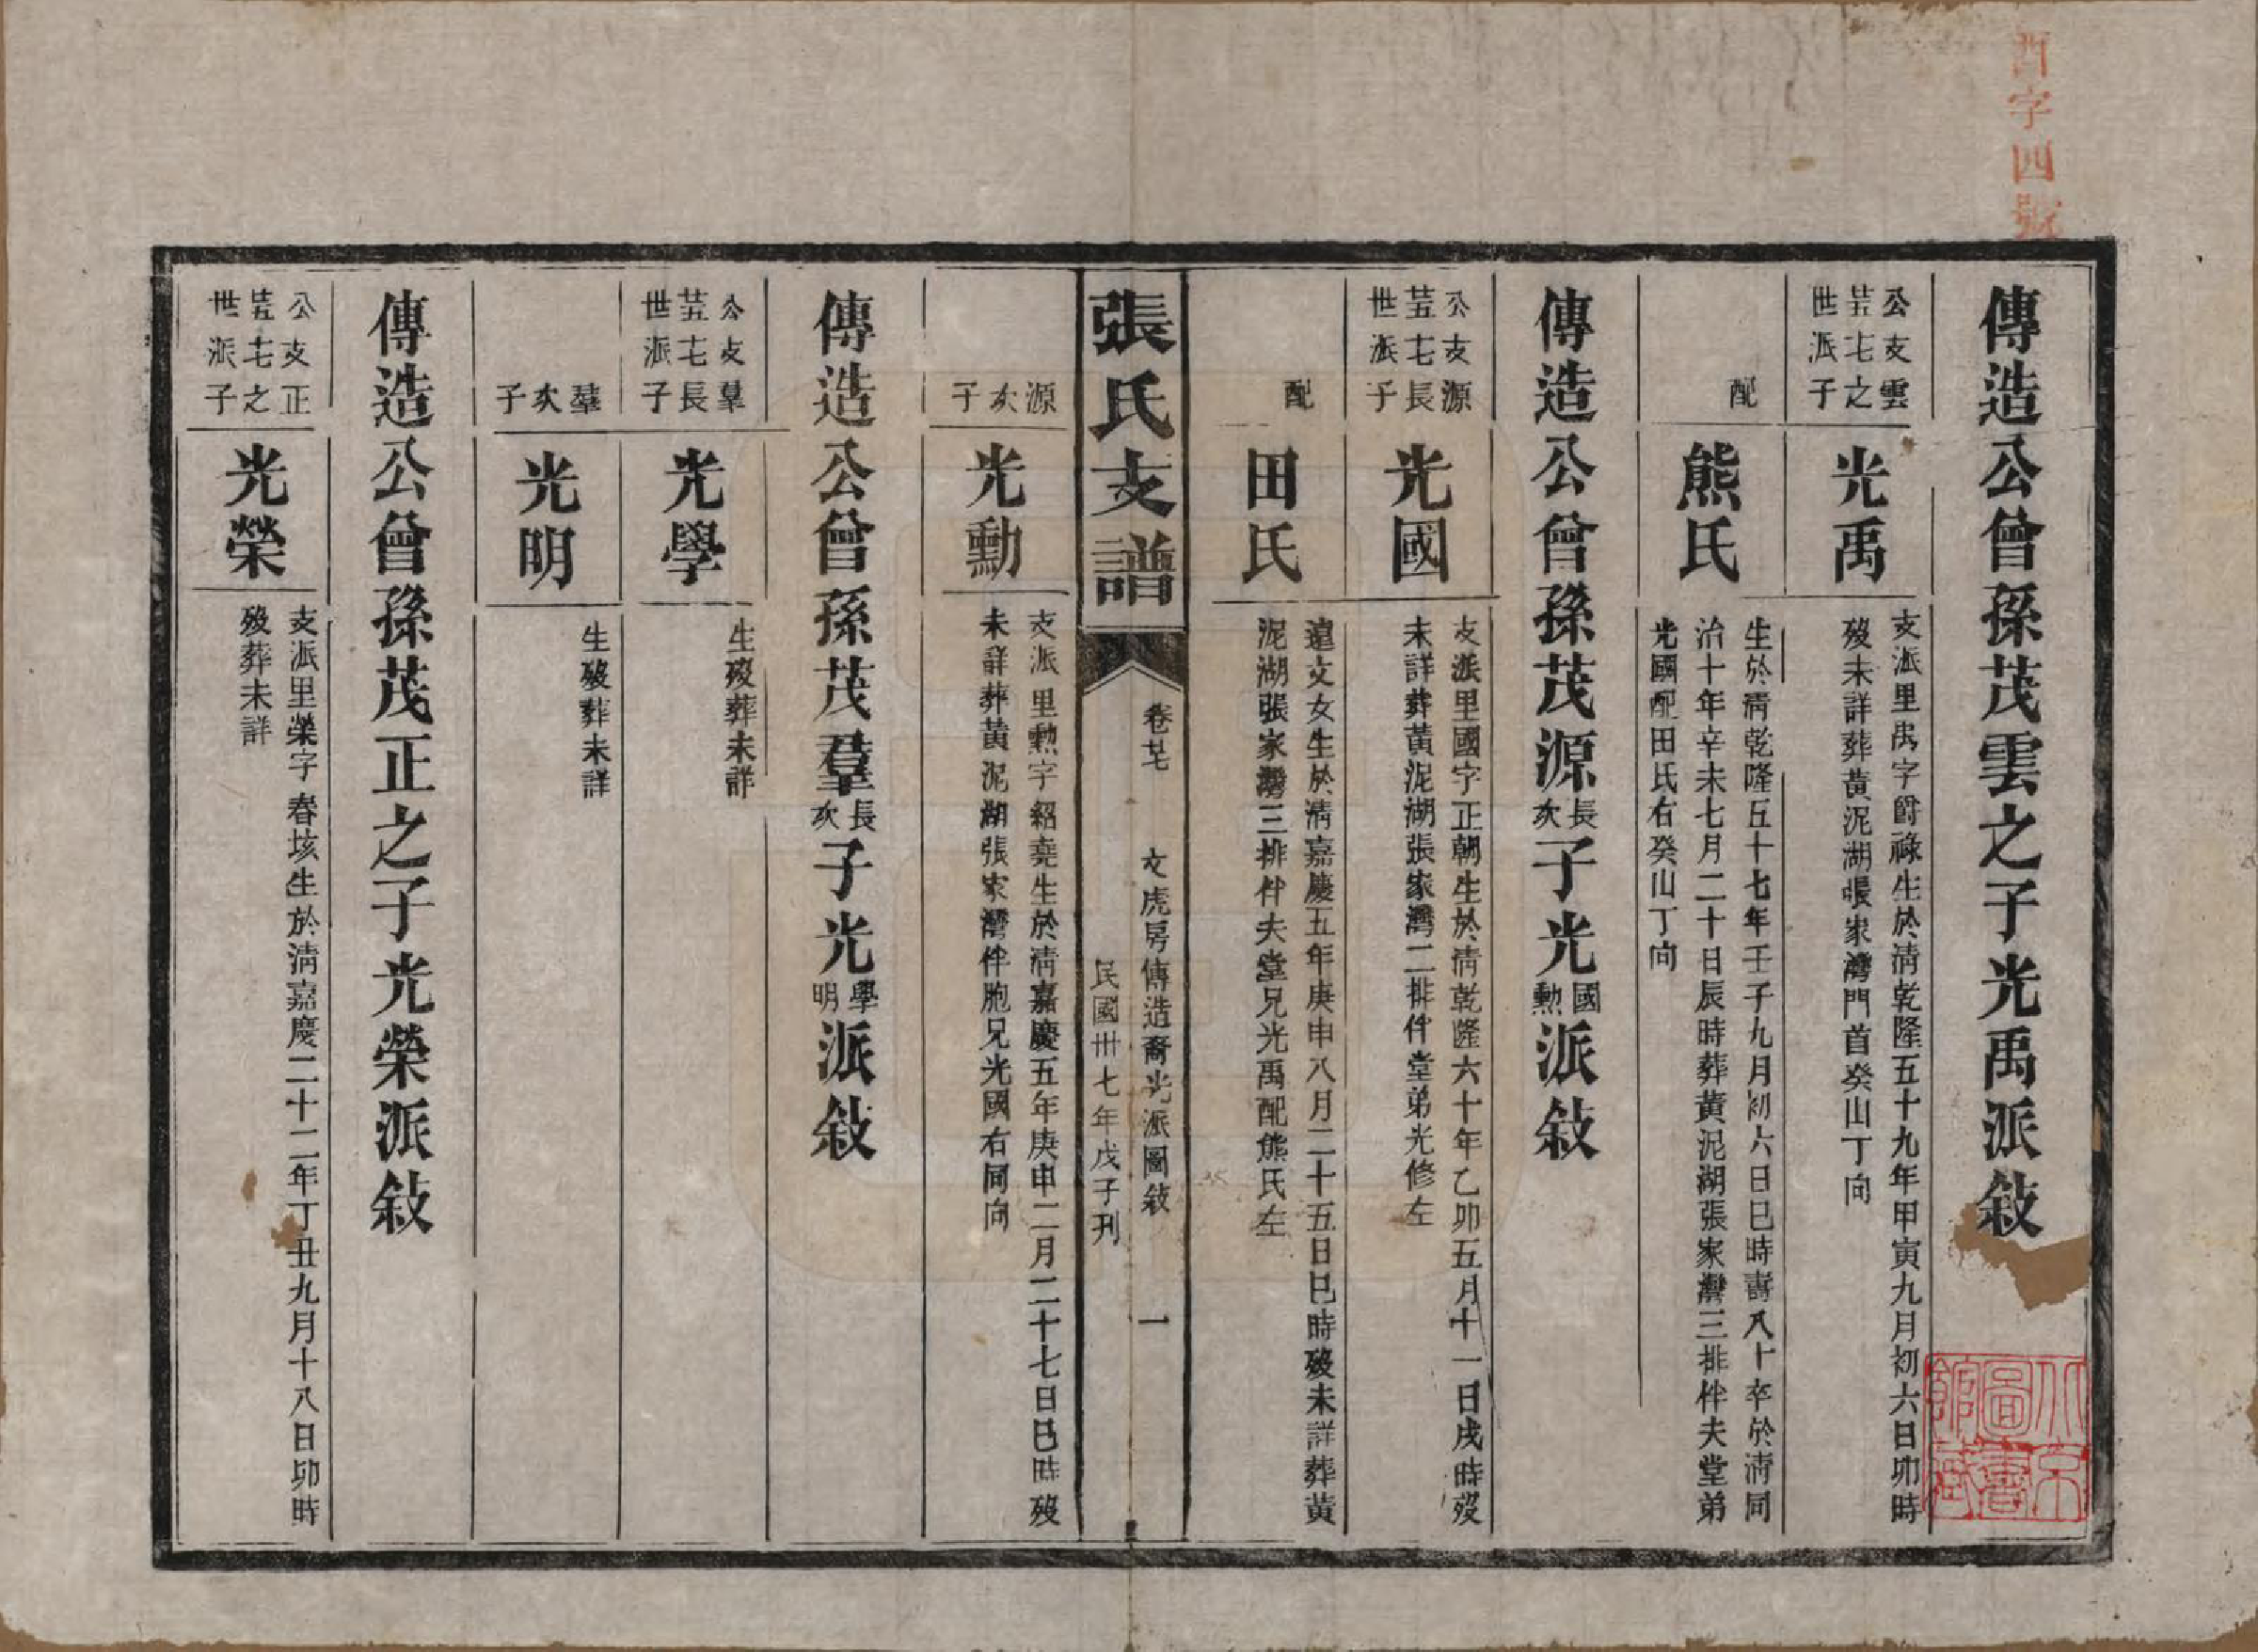 酉字四號
傳造公曾孫茂雲之子光禹派敍
公支雲
芸七之
世派子
光禹
支派里禹字爵祿生於清乾隆五十九年甲寅九月初六日卯時
歿未詳葬黃泥湖張家灣門首癸山丁向
配
熊氏
生於清乾隆五十七年壬子九月初六日巳時壽八十卒於清同
治十年辛未七月二十日辰時葬黃泥湖張家灣三排伴夫堂弟
光國配田氏右癸山丁向
傳造公曾孫茂源長次子光國勲派敍
公支源
芸七長
世派子
光國
支派里國字正朝生於清乾隆六十年乙卯五月十一日戌時歿
未詳葬黃泥湖張家灣二排伴堂弟光修左
配
田氏
遠文女生於清嘉慶五年庚申八月二十五日巳時歿未詳葬黃
泥湖張家灣三排伴夫堂兄光禹配熊氏左
張氏支譜
卷廿七 文虎房傳造裔光派圖敍 一
民國卅七年戊子刊
源次子
光勳
支派里勲字紹堯生於清嘉慶五年庚申二月二十七日巳時歿
未詳葬黃泥湖張家灣伴胞兄光國右同向
傳造公曾孫茂羣長次子光學明派敍
公支羣
芸七長
世派子
光學
生歿葬未詳
羣次子
光明
生歿葬未詳
傳造公曾孫茂正之子光榮派敍
公支正
芸七之
世派子
光榮
支派里榮字春垓生於清嘉慶二十二年丁丑九月十八日卯時
歿葬未詳
北京圖書館藏